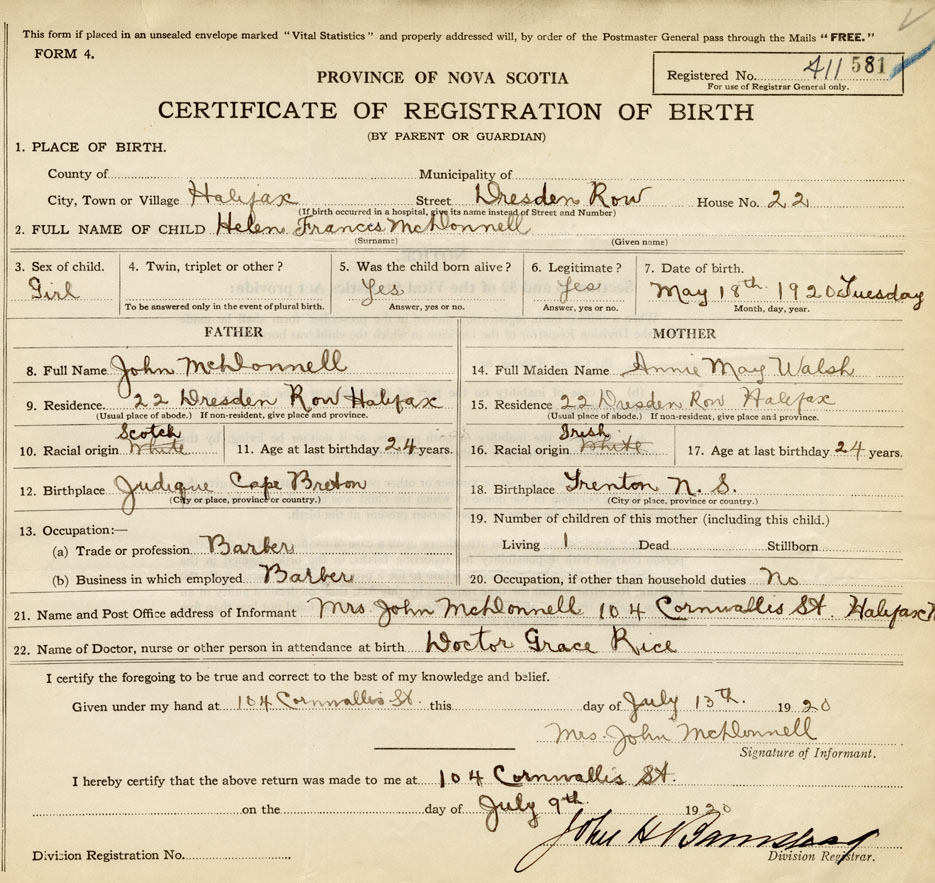 This form if placed in an unsealed envelope marked "Vital Statistics" and properly addressed will, by order of the Postmaster General pass through the Mails "FREE."
FORM 4.
Registered No. 411 581
For use of Registrar General only.
PROVINCE OF NOVA SCOTIA
CERTIFICATE OF REGISTRATION OF BIRTH
(BY PARENT OR GUARDIAN)
1. PLACE OF BIRTH.
County of Municipality of
City, Town or Village Halifax Street Dresden Row House No. 22
(If birth occurred in a hospital, give its name instead of Street and Number)
2. FULL NAME OF CHILD Helen Frances McDonnell
(Surname) (Given name)
3. Sex of child. 4. Twin, triplet or other? 5. Was the child born alive? 6. Legitimate? 7. Date of birth.
Girl Yes Yes May 18th 1920 Tuesday
To be answered only in the event of plural birth. Answer, yes or no. Answer, yes or no. Month, day, year.
FATHER MOTHER
8. Full Name John McDonnell 14. Full Maiden Name Annie May Walsh
9. Residence 22 Dresden Row Halifax 15. Residence 22 Dresden Row Halifax
(Usual place of abode.) If non-resident, give place and province. (Usual place of abode.) If non-resident, give place and province.
Scotch Irish
10. Racial origin White 11. Age at last birthday 24 years. 16. Racial origin White 17. Age at last birthday 24 years.
12. Birthplace Judique Cape Breton 18. Birthplace Trenton N. S.
(City or place, province or country.) (City or place, province or country.)
13. Occupation:— 19. Number of children of this mother (including this child.)
(a) Trade or profession Barber Living 1 Dead Stillborn
(b) Business in which employed Barber 20. Occupation, if other than household duties No
21. Name and Post Office address of Informant Mrs. John McDonnell 104 Cornwallis St. Halifax
22. Name of Doctor, nurse or other person in attendance at birth Doctor Grace Rice
I certify the foregoing to be true and correct to the best of my knowledge and belief.
Given under my hand at 104 Cornwallis St. this day of July 13th. 1920
Mrs. John McDonnell
Signature of Informant.
I hereby certify that the above return was made to me at 104 Cornwallis St.
on the day of July 9th 1920
John H
Division Registration No. Division Registrar.